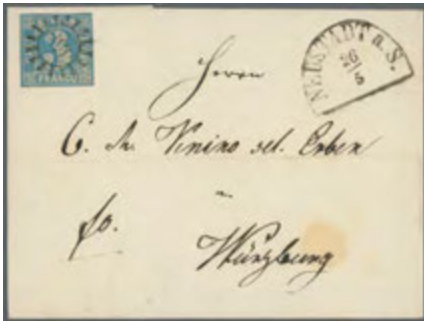 NEUSTADT a. S.
26
5
Herrn
C. A. Venino sel. Erben
in
fo. Würzburg